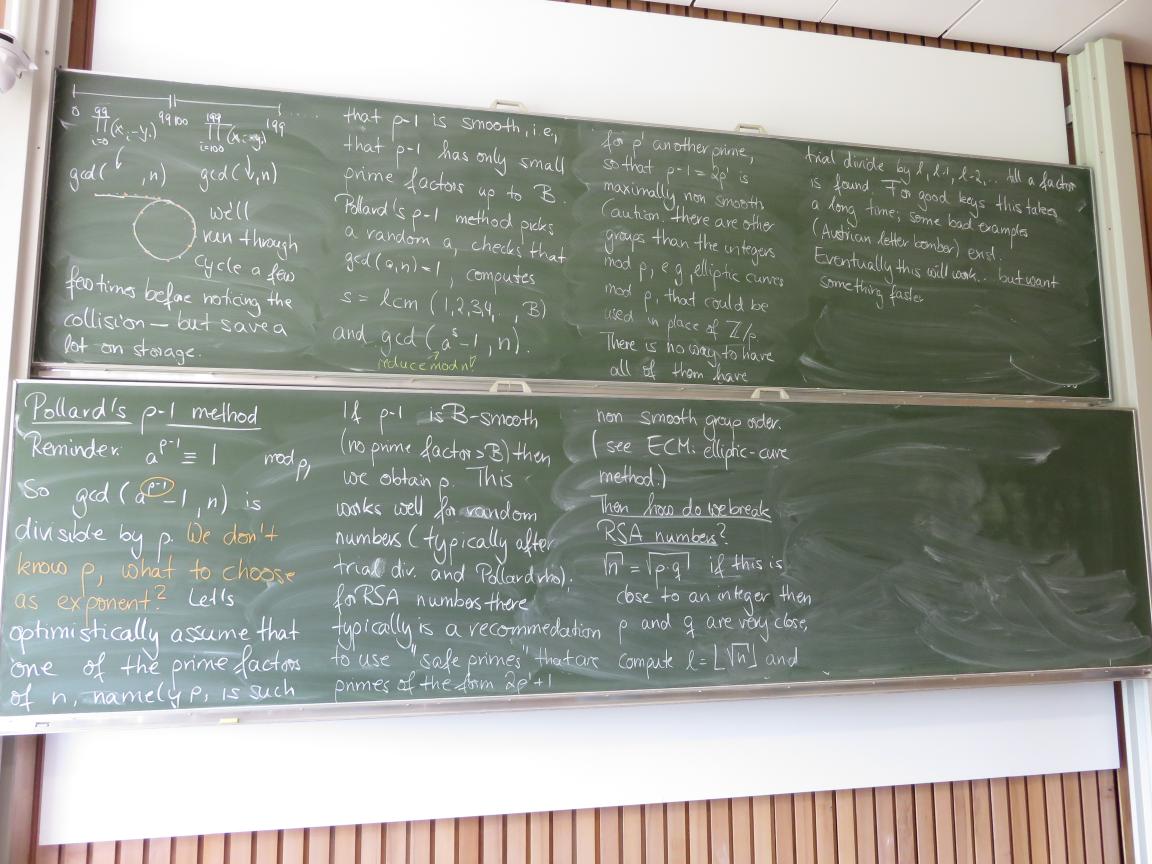 0 99 100 199 .....
99 ∏ i=0 (x_i-y_i) 199 ∏ i=100 (x_i-y_i)
gcd( , n) gcd( , n)
we'll
run through
cycle a few
few times before noticing the
collision — but save a
lot on storage.
Pollard's p-1 method
Reminder: a^{p-1} ≡ 1 mod p,
So gcd (a^{p-1}-1, n) is
divisible by p. We don't
know p, what to choose
as exponent? Let's
optimistically assume that
one of the prime factors
of n, namely p, is such
that p-1 is smooth, i.e.,
that p-1 has only small
prime factors up to B.
Pollard's p-1 method picks
a random a, checks that
gcd(a,n)=1, computes
s = lcm (1,2,3,4, , B)
and gcd (a^s-1, n).
reduce mod n!
If p-1 is B-smooth
(no prime factor > B) then
we obtain p. This
works well for random
numbers (typically after
trial div. and Pollard rho);
for RSA numbers there
typically is a recommedation
to use "safe primes" that are
primes of the form 2p'+1
for p' another prime,
so that p-1 = 2p' is
maximally non smooth
(aution. there are other
groups than the integers
mod p, e.g. elliptic curves
mod p, that could be
used in place of Z/p.
There is no way to have
all of them have
non smooth group order.
(see ECM: elliptic-curve
method.)
Then how do we break
RSA numbers?
√n = √p·q if this is
close to an integer then
p and q are very close,
compute l = ⌊√n⌋ and
trial divide by l, l-1, l-2, ... till a factor
is found. For good keys this takes
a long time; some bad examples
(Austrian letter bomber) exist.
Eventually this will work... but want
something faster